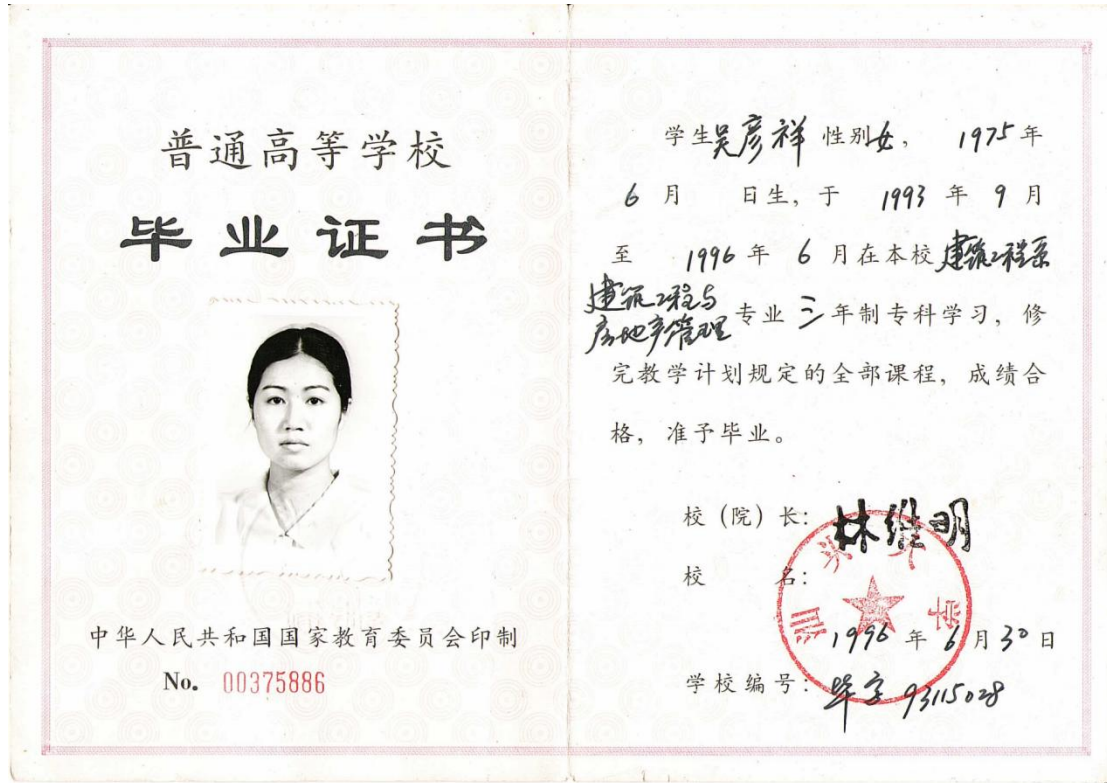 普通高等学校
毕业证书
中华人民共和国国家教育委员会印制
No. 00375886
学生吴彦祥 性别女， 1975年
6 月 日生，于 1993 年 9 月
至 1996 年 6 月在本校建筑工程系
建筑工程与
房地产管理 专业 三 年制专科学习，修
完教学计划规定的全部课程，成绩合
格，准予毕业。
校（院）长：林维明
校 名：
1996 年 6 月 30 日
学校编号：毕字 93115028